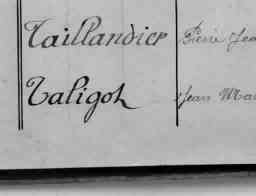 Taillandier Pierre Jea
Taligot Jean Ma